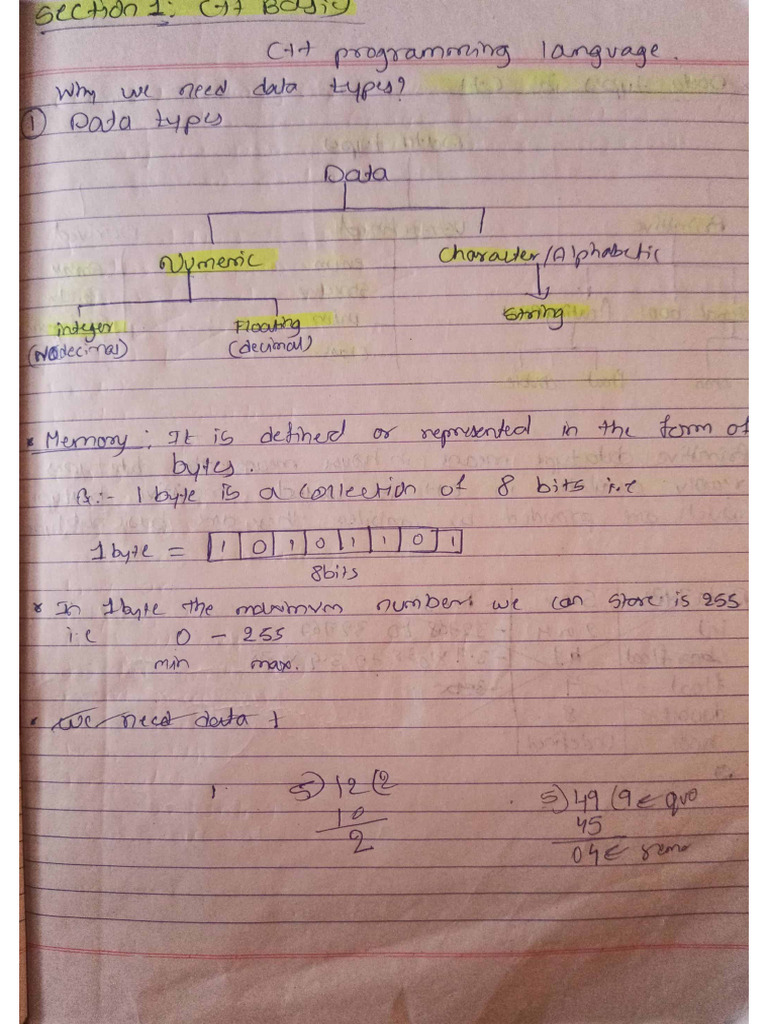 Section 1: C++ Basis
C++ programming language.
Why we need data types?
① Data types
Data
Numeric Character/Alphabetic
integer Floating String
(No decimal) (decimal)
• Memory: It is defined or represented in the form of
bytes.
1 byte is a collection of 8 bits i.e
1 byte = 1 0 1 0 1 1 0 1
8bits
* In 1byte the maximum number we can store is 255
i.e 0 – 255
min max.
• We need data t
5)12(2 5)49(9 ← quo
10 45
2 04 ← rem